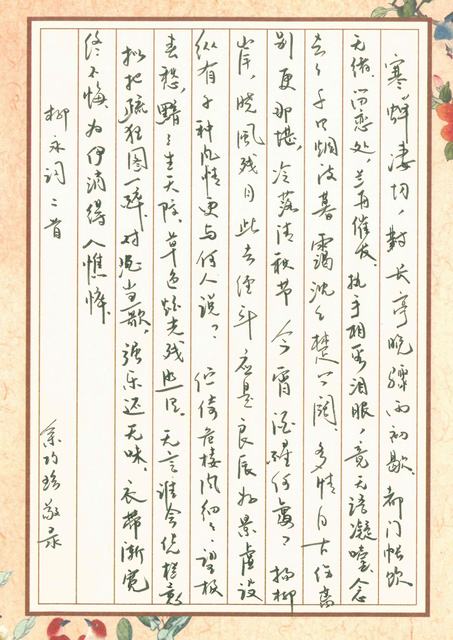 寒蝉凄切,對长亭晚骤雨初歇.都门帐饮
无绪.留恋处,兰舟催发.执手相看泪眼,竟无语凝噎.念
去々千里烟波暮霭沈々楚天阔.多情自古伤离
别更那堪,冷落清秋节 今宵酒醒何處?杨柳
岸,晓风残月 此去经年 应是良辰好景虚设
纵有千种风情更与何人说? 伫倚危楼风细々 望极
春愁,黯々生天际.草色烟光残照里.无言谁会凭栏意
拟把疏狂图一醉.对酒当歌.强乐还无味.衣带渐宽
终不悔.为伊消得人憔悴.
柳永词二首
敬录